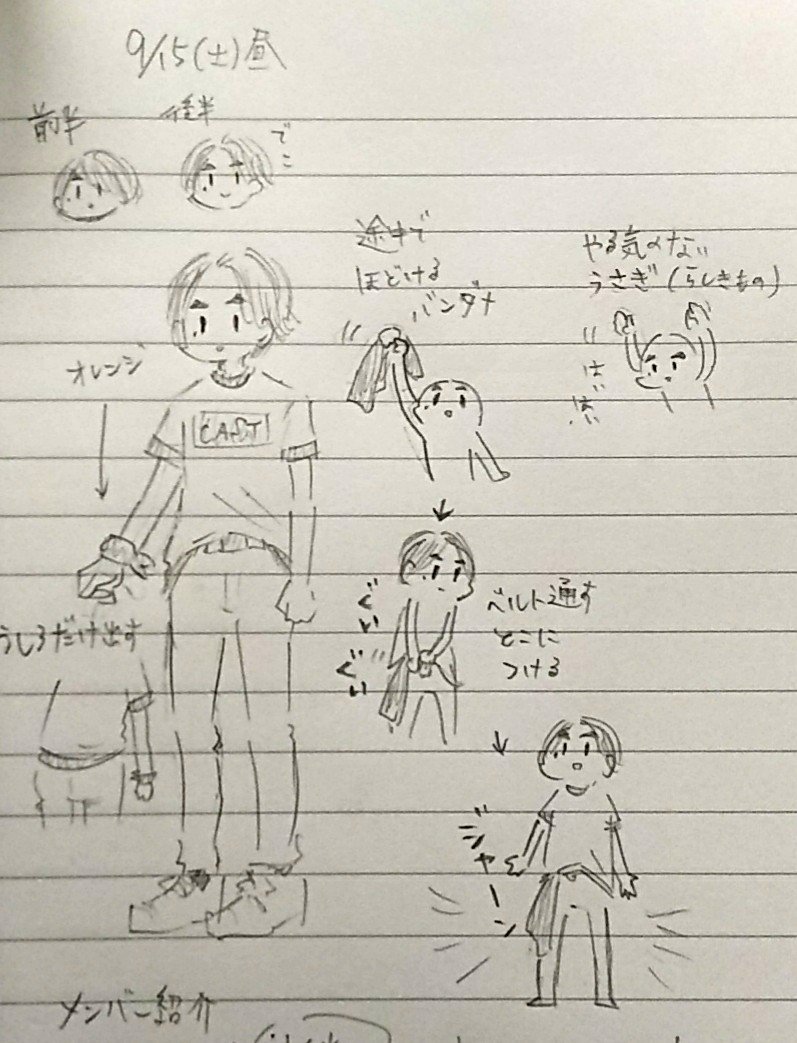 9/15(土)昼
前半
後半
でこ
途中で
ほどける
バンダナ
やる気のない
うさぎ(らしきもの)
オレンジ
CAST
ぐい
ぐい
ベルト通す
とこに
つける
うしろだけ出す
ジャーン
メンバー紹介